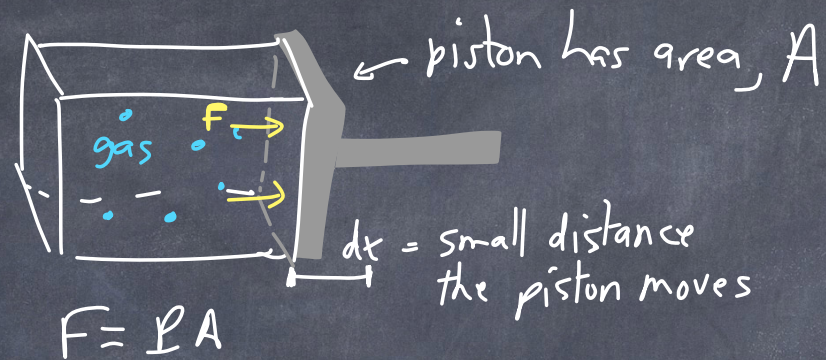 piston has area, A
F
gas
dx = small distance
the piston moves
F = PA